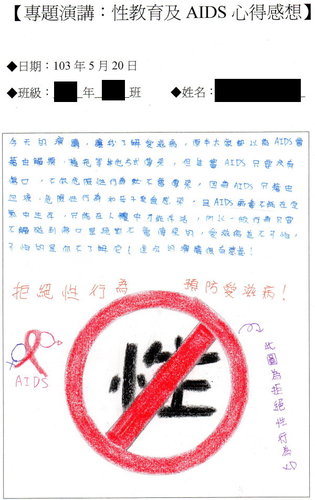 【專題演講：性教育及 AIDS 心得感想】
◆日期：103 年 5 月 20 日
◆班級： 年 班 ◆姓名：
今天的演講，讓我了解愛滋病，原本大家都以為AIDS會
藉由觸摸、擁抱等其他方式傳染，但其實AIDS只要沒有
傷口，不做危險性行為就不會傳染，因為AIDS只藉由
血液、危險性行為和母子垂直感染，且AIDS病毒不能在空
氣中生存，只能在人體中才能存活，所以一般行為只要
不觸碰到傷口是絕對不會傳染的，愛滋病並不可怕，
可怕的是你不了解它！這次的演講很有意義！
拒絕性行為 預防愛滋病！
AIDS
性
此圖為拒絕性行為